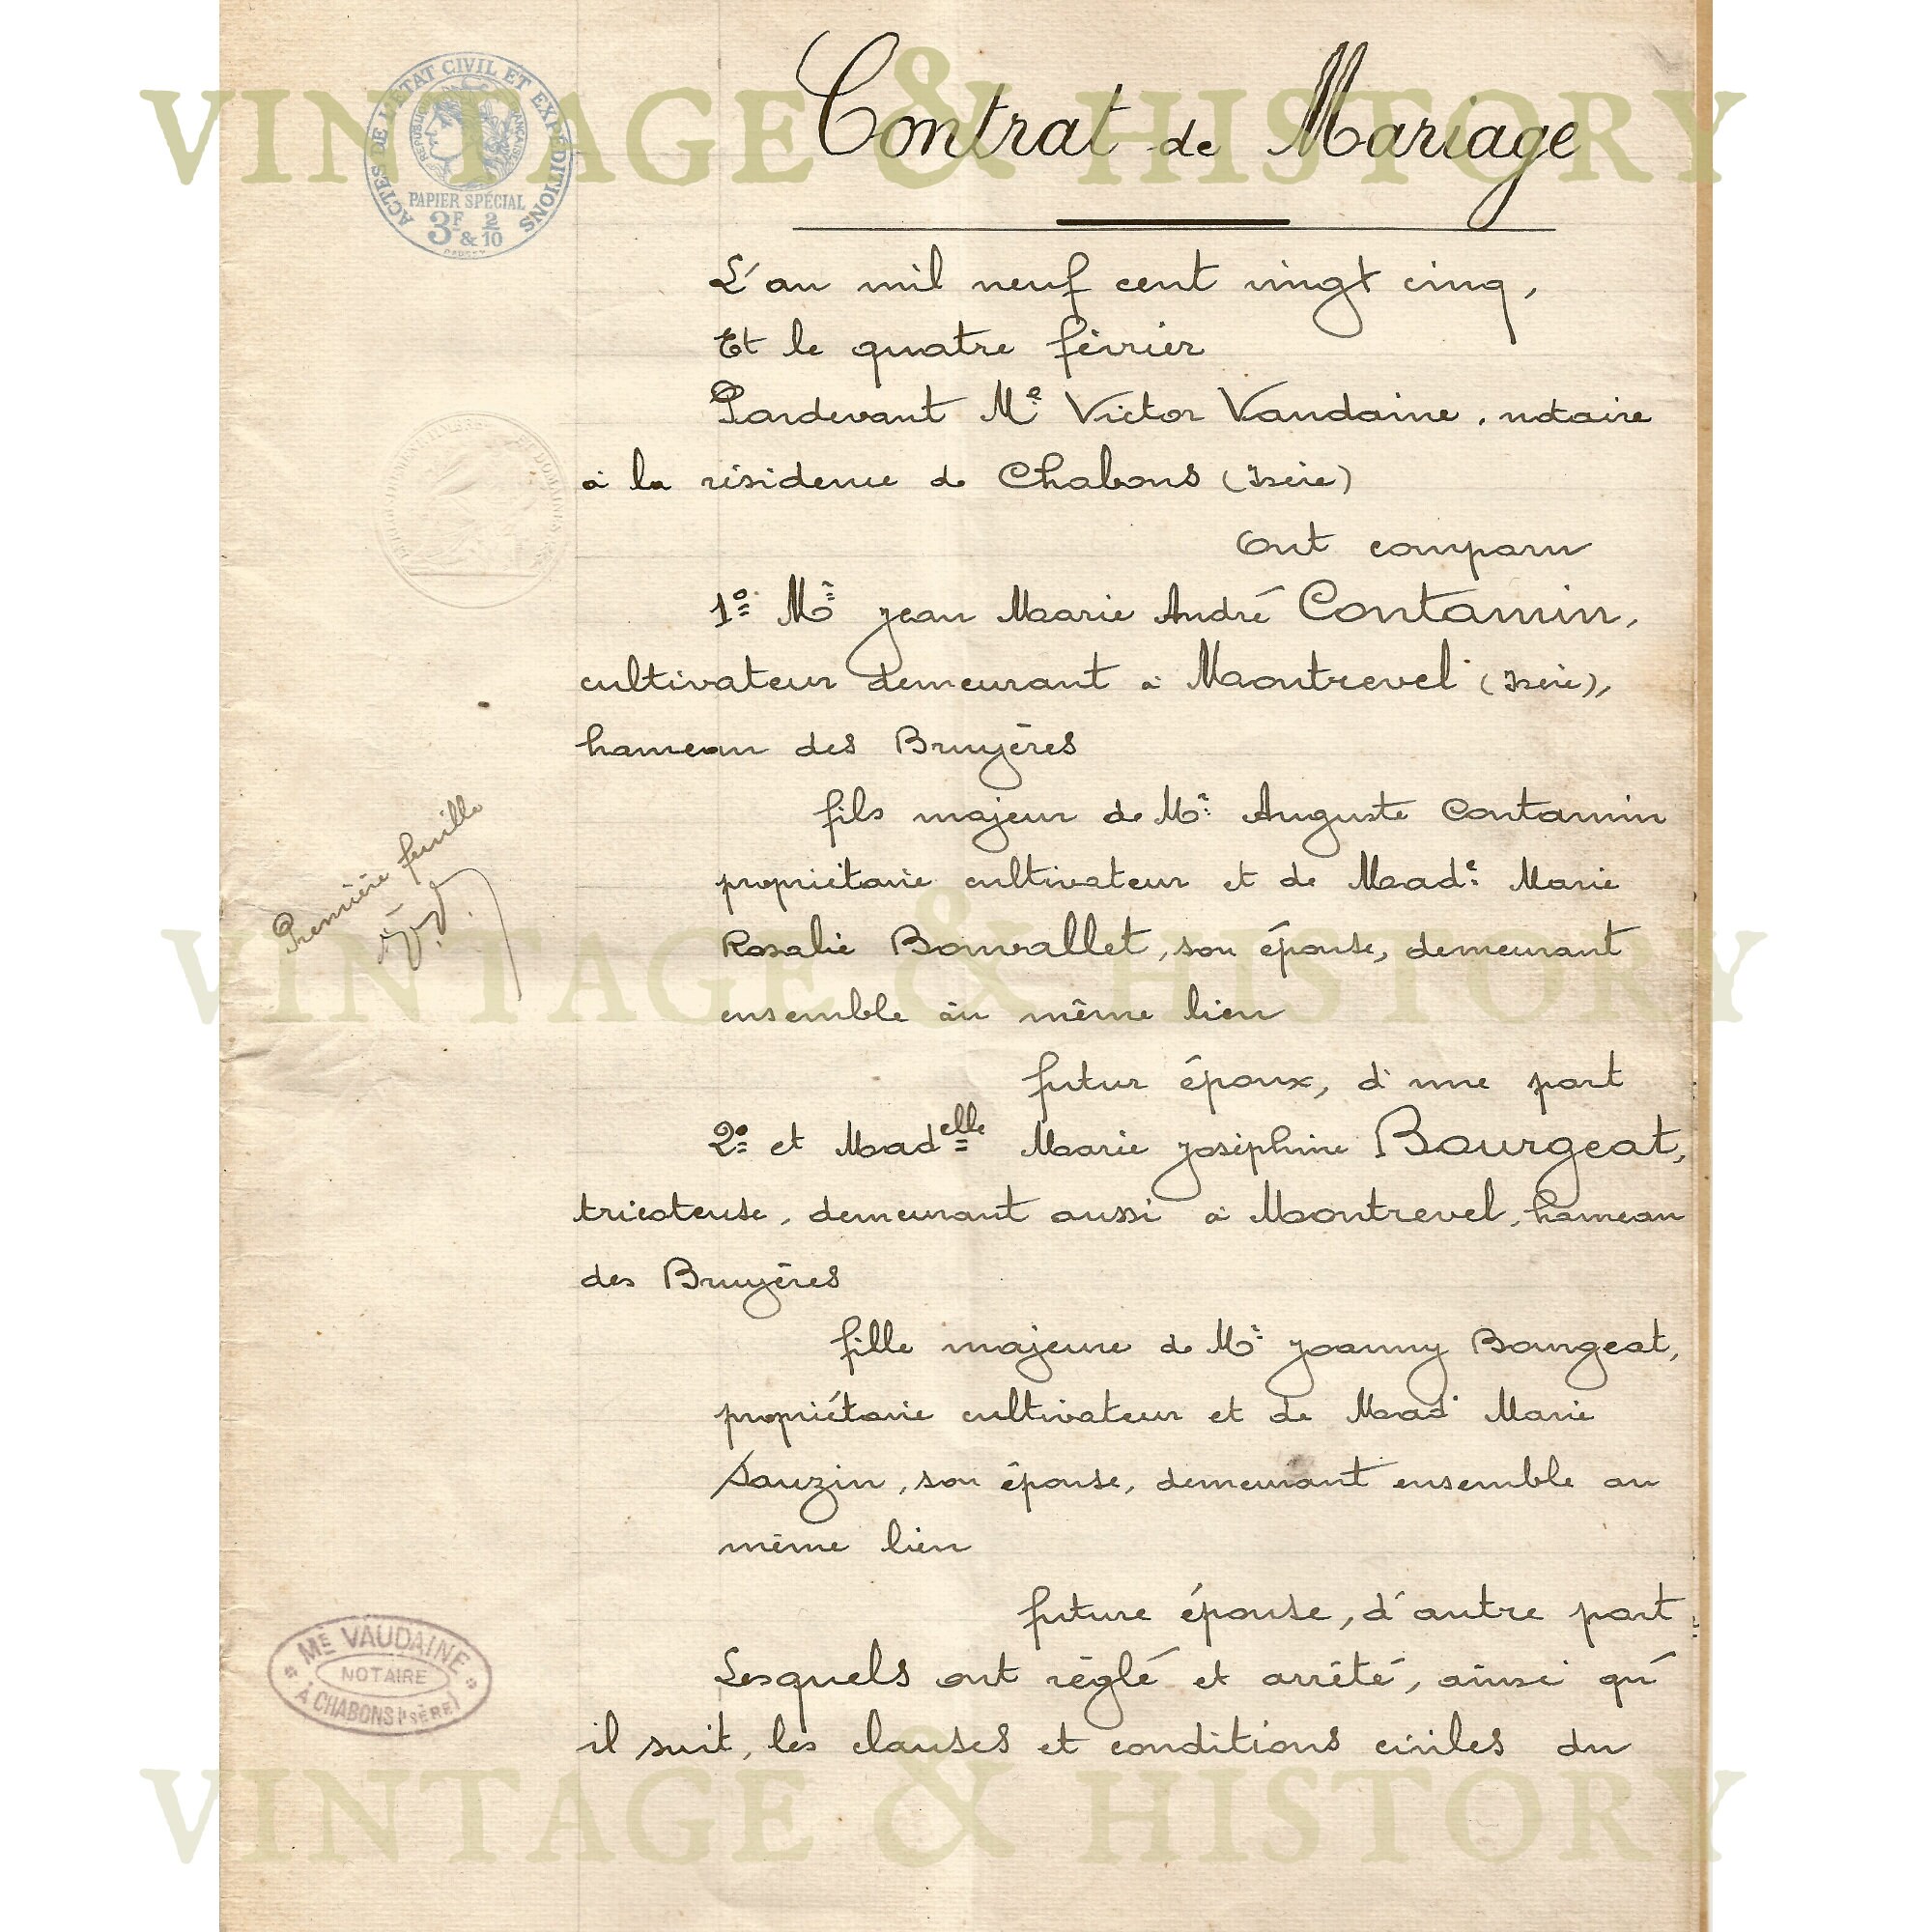 VINTAGE & HISTORY
ACTES DE L'ÉTAT CIVIL ET EXPÉDITIONS
RÉPUBLIQUE FRANÇAISE
PAPIER SPÉCIAL
3F & 2/10
Contrat de Mariage
L'an mil neuf cent vingt cinq,
Et le quatre février
Pardevant Me Victor Vaudaine, notaire
à la résidence de Chabons (Isère)
Ont comparu
1º Mr Jean Marie André Contamin,
cultivateur demeurant à Montrevel (Isère),
hameau des Bruyères
fils majeur de Mr Auguste Contamin
propriétaire cultivateur et de Made Marie
Rosalie Bonvallet, son épouse, demeurant
ensemble au même lieu
Première feuille
VINTAGE & HISTORY
futur époux, d'une part
2º et Madelle Marie Joséphine Bourgeat,
tricoteuse, demeurant aussi à Montrevel, hameau
des Bruyères
fille majeure de Mr Joanny Bourgeat,
propriétaire cultivateur et de Made Marie
Sauzin, son épouse, demeurant ensemble au
même lieu
future épouse, d'autre part
Lesquels ont réglé et arrêté, ainsi qu'
il suit, les clauses et conditions civiles du
ME VAUDAINE
NOTAIRE
À CHABONS (ISÈRE)
VINTAGE & HISTORY